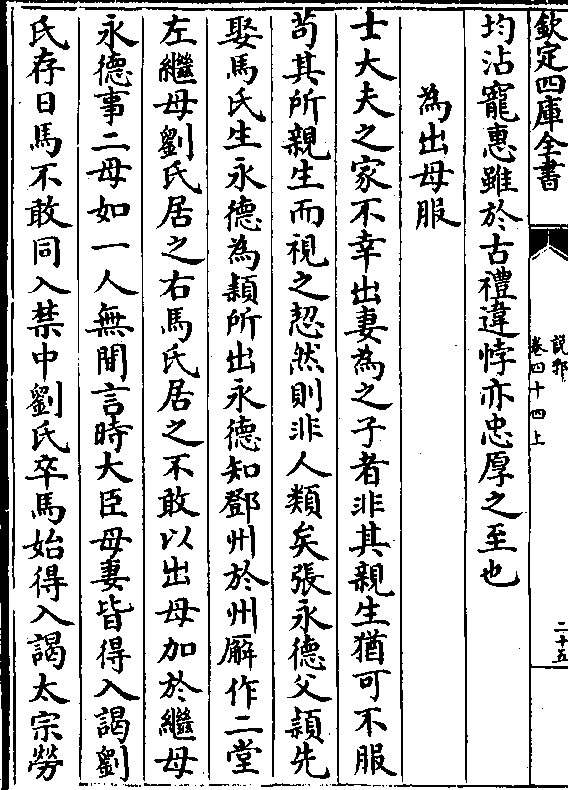 欽定四庫全書
說郛
卷四十四上
二十五
均沾寵惠雖於古禮違悖亦忠厚之至也
為出母服
士大夫之家不幸出妻為之子者非其親生猶可不服
茍其所親生而視之恝然則非人類矣張永德父頴先
娶馬氏生永德為頴所出永德知鄧州於州廨作二堂
左繼母劉氏居之右馬氏居之不敢以出母加於繼母
永德事二母如一人無閒言時大臣母妻皆得入謁劉
氏存日馬不敢同入禁中劉氏卒馬始得入謁太宗勞